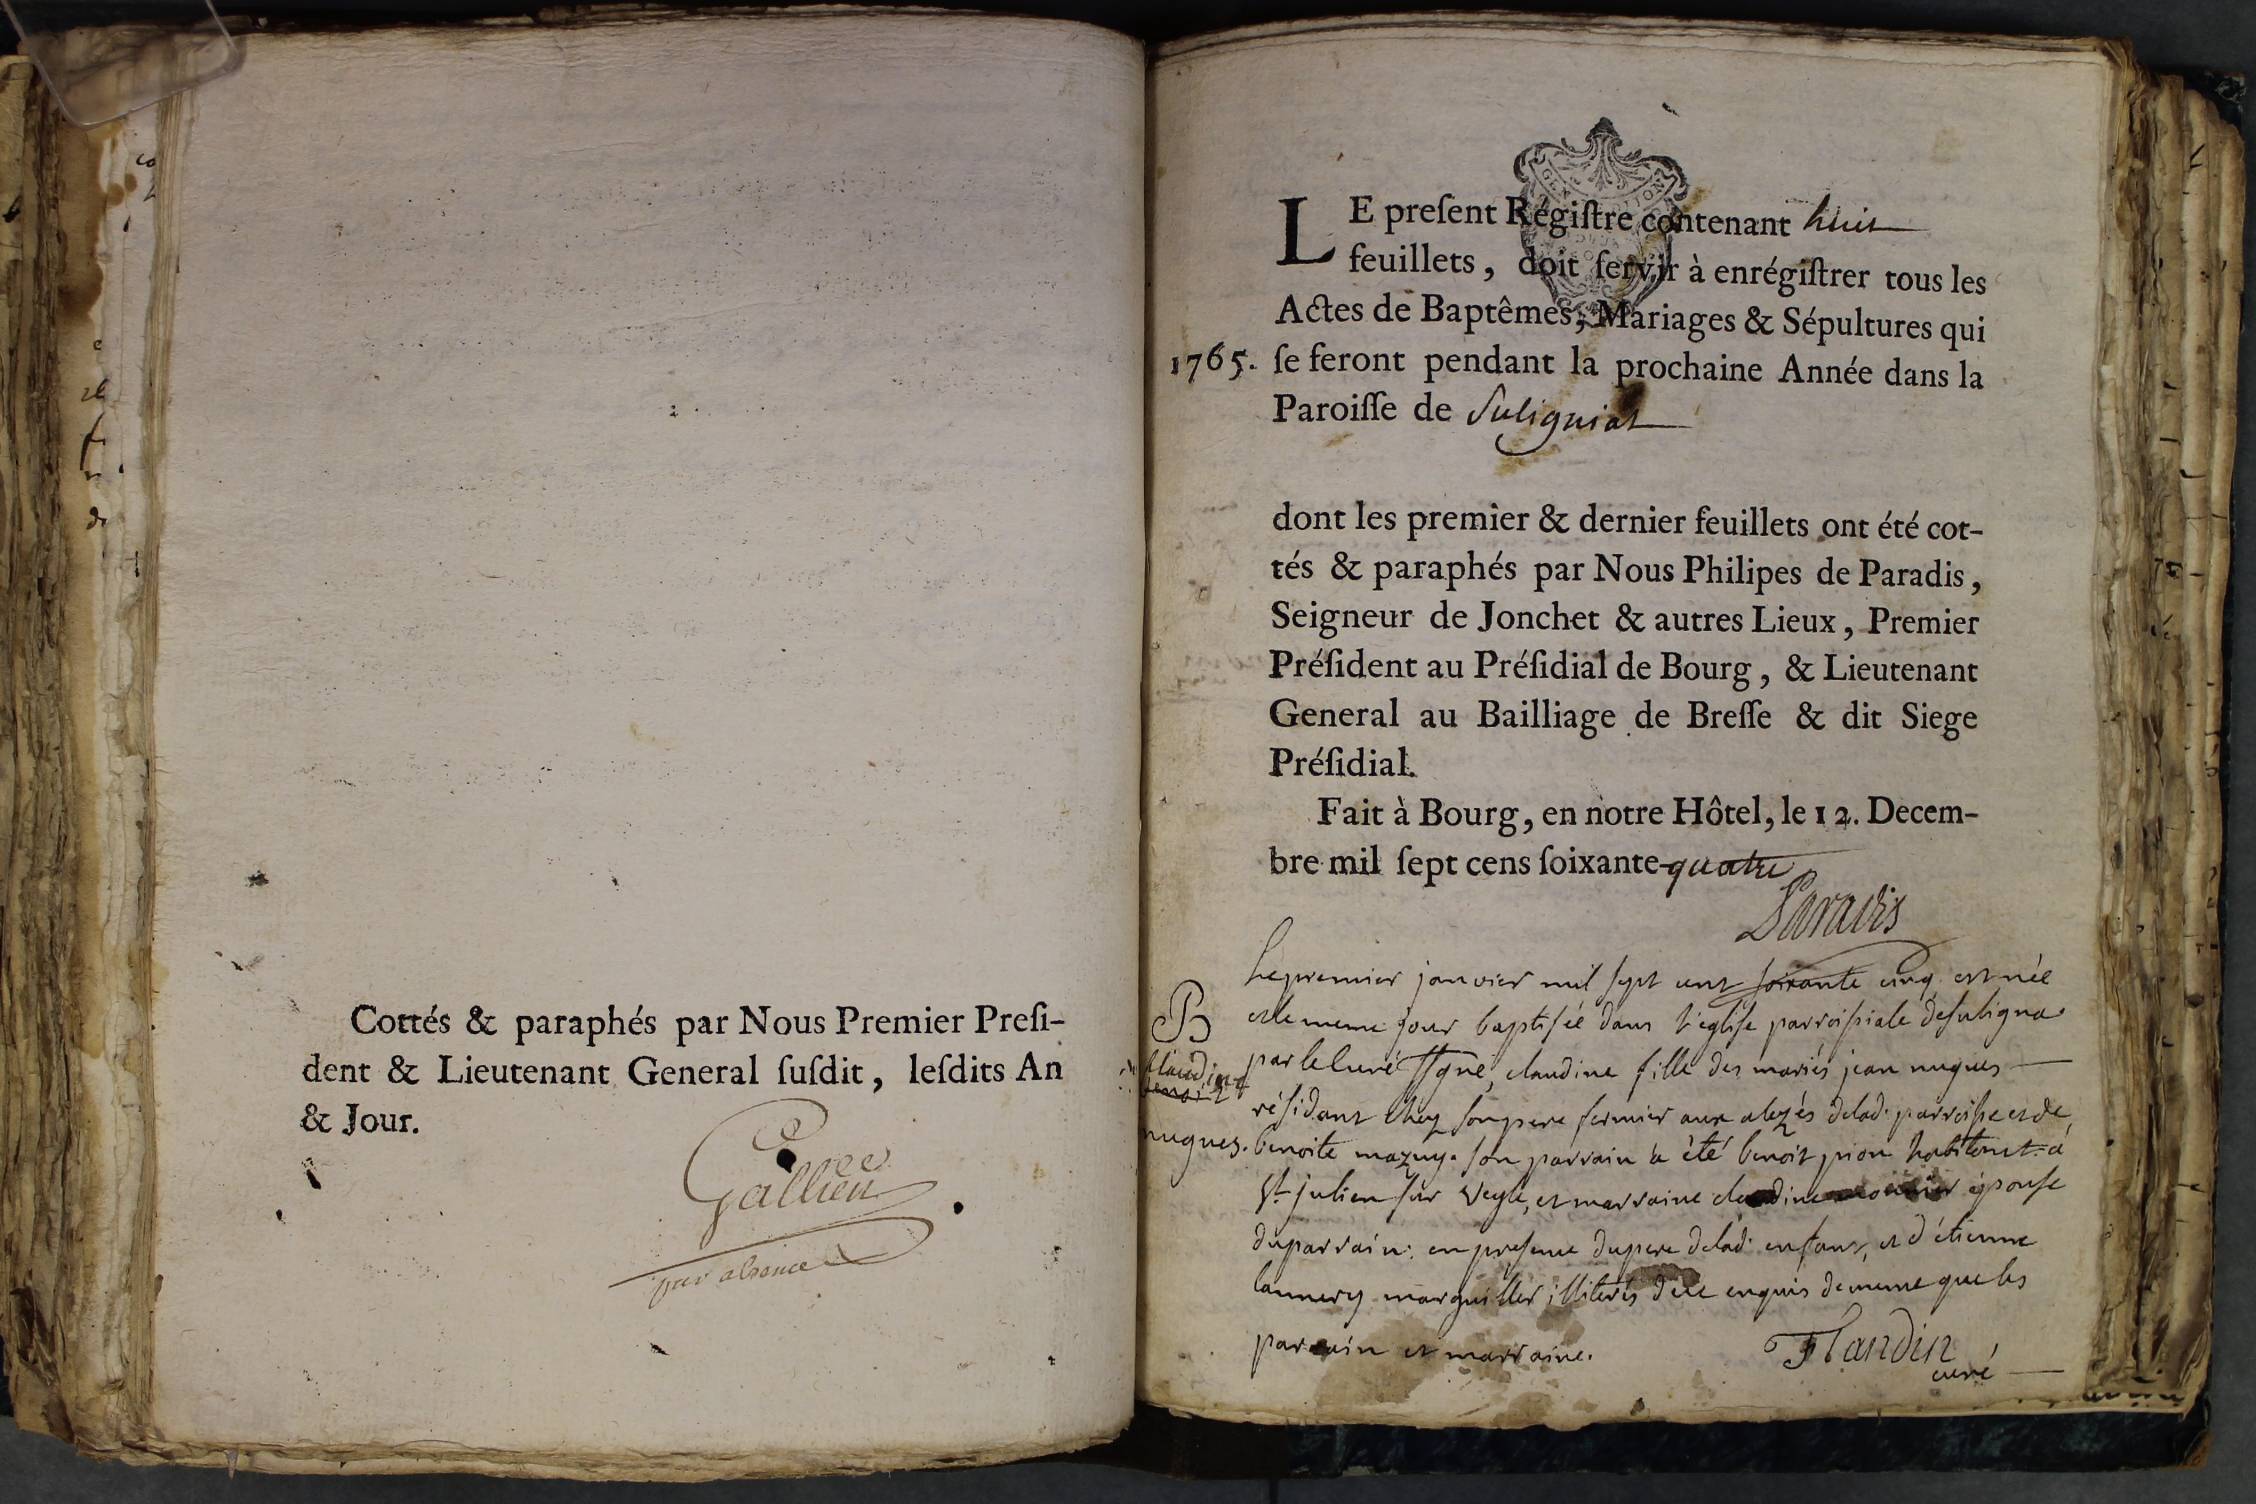 Cottés & paraphés par Nous Premier Presi-
dent & Lieutenant General susdit, lesdits An
& Jour.
Gallien
par absence
LE present Régistre contenant huit
feuillets, doit servir à enrégistrer tous les
Actes de Baptêmes, Mariages & Sépultures qui
1765. se feront pendant la prochaine Année dans la
Paroisse de Suligniat
dont les premier & dernier feuillets ont été cot-
tés & paraphés par Nous Philipes de Paradis,
Seigneur de Jonchet & autres Lieux, Premier
Président au Présidial de Bourg, & Lieutenant
General au Bailliage de Bresse & dit Siege
Présidial.
Fait à Bourg, en notre Hôtel, le 12. Decem-
bre mil sept cens soixante-quatre
Paradis
B
Claudine
nugues.
Le premier janvier mil sept cent soixante cinq est née
et le meme jour baptisée dans l'eglise parroissiale de suligna
par le curé ssgné, claudine fille des mariés jean nugues
résidant chez son pere fermier aux alezés de lad. parroisse et de
benoite mazuy. son parrain a été benoit pion habitant a
st julien sur veyle, et marraine claudine épouse
du parrain. en presence du pere de lad. enfant, et d'étienne
lannery marguiller illiterés de ce enquis de meme que les
parrain et marraine.
Flandin
curé